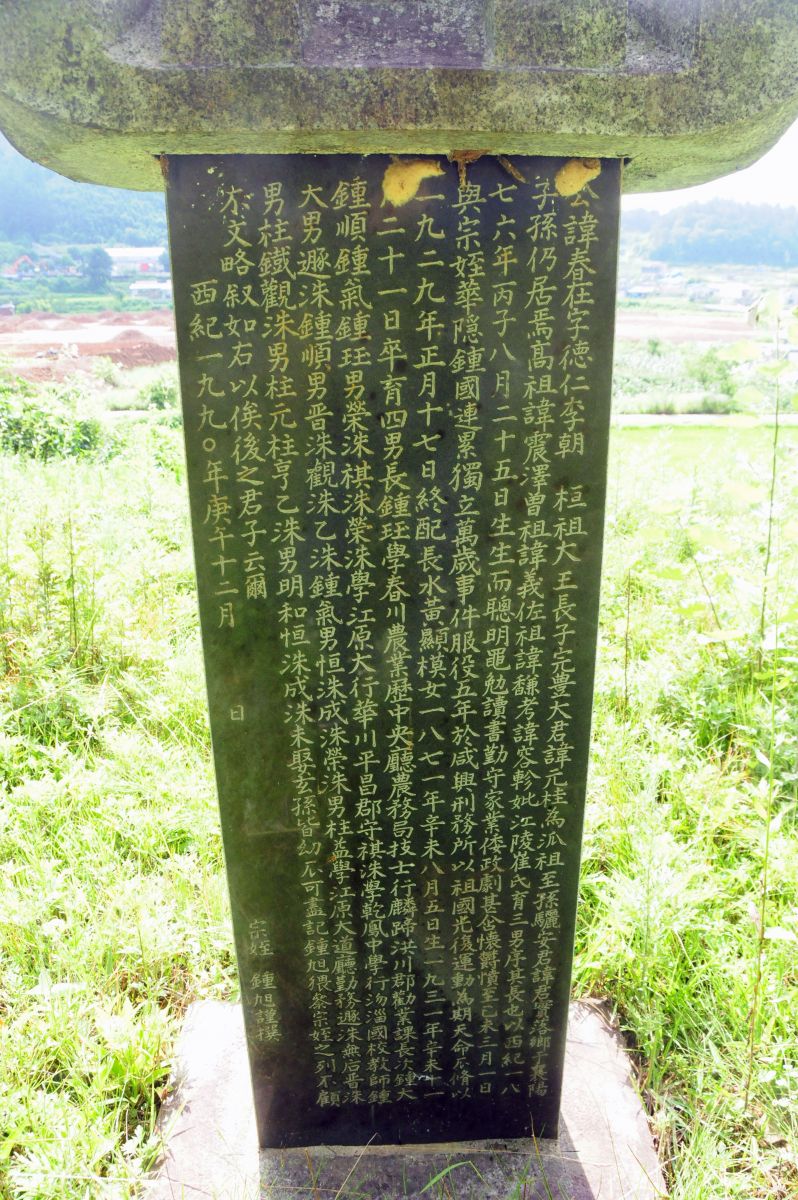 公諱春在字德仁李朝 桓祖大王長子完豊大君諱元桂為派祖至孫驪安君諱君實落鄉于襄陽
子孫仍居焉高祖諱震澤曾祖諱義佐祖諱馦考諱容軫妣江陵崔氏育三男序其長也以西紀一八
七六年丙子八月二十五日生生而聰明黽勉讀書勤守家業倭政劇甚含懷欝憤至己未三月一日
與宗姪華隱鍾國連累獨立萬歲事件服役五年於咸興刑務所以祖國光復運動為期天命不脩以
一九二九年正月十七日終配長水黃顯模女一八七一年辛未八月五日生一九三一年辛未十一
月二十一日卒育四男長鍾玨學春川農業歷中央廳農務局技士行麟蹄洪川郡勸業課長次鍾大
鍾順鍾氣鍾玨男榮洙祺洙榮洙學江原大行華川平昌郡守祺洙學乾鳳中學行汤淄國校教師鍾
大男遯洙鍾順男晋洙觀洙乙洙鍾氣男恒洙成洙榮洙男柱益學江原大道廳勤務遯洙無后晋洙
男柱鐵觀洙男柱元柱亨乙洙男明和恒洙成洙未娶玄孫皆幼不可盡記鍾旭猥忝宗姪之列不顧
不文略叙如右以俟後之君子云爾
西紀一九九〇年庚午十二月 日
宗姪 鍾旭謹撰